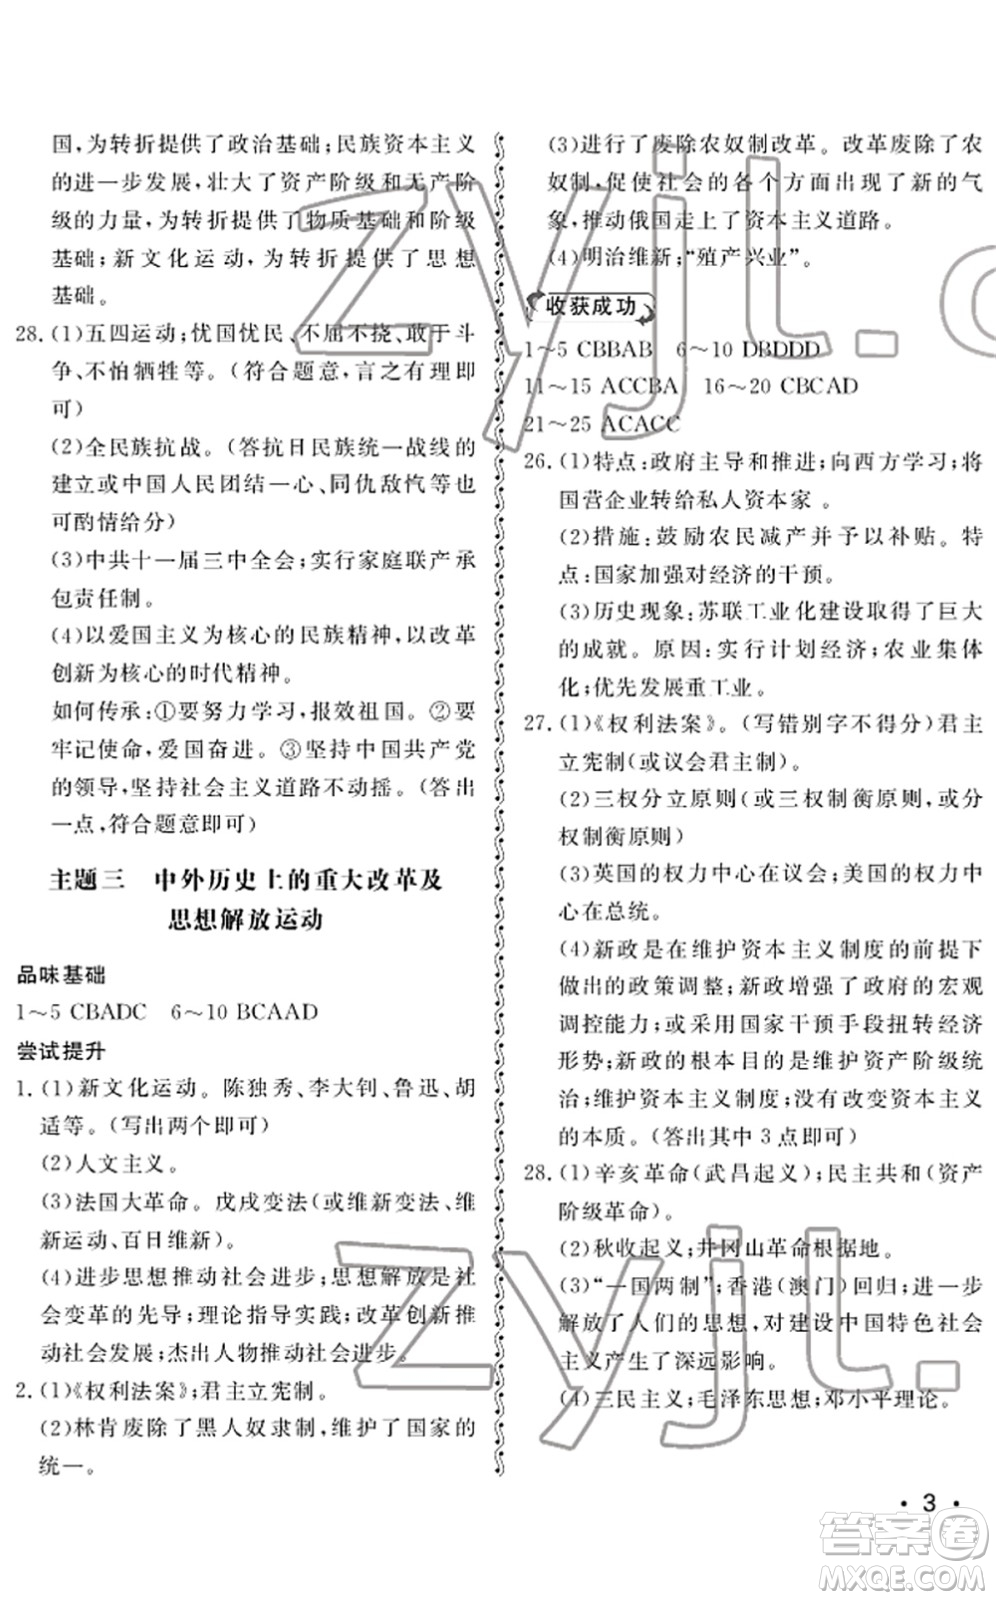 国，为转折提供了政治基础；民族资本主义
的进一步发展，壮大了资产阶级和无产阶
级的力量，为转折提供了物质基础和阶级
基础；新文化运动，为转折提供了思想
基础。
28.(1)五四运动；忧国忧民、不屈不挠、敢于斗
争、不怕牺牲等。（符合题意，言之有理即
可）
(2)全民族抗战。（答抗日民族统一战线的
建立或中国人民团结一心、同仇敌忾等也
可酌情给分）
(3)中共十一届三中全会；实行家庭联产承
包责任制。
(4)以爱国主义为核心的民族精神，以改革
创新为核心的时代精神。
如何传承：①要努力学习，报效祖国。②要
牢记使命，爱国奋进。③坚持中国共产党
的领导，坚持社会主义道路不动摇。（答出
一点，符合题意即可）
主题三　中外历史上的重大改革及
思想解放运动
品味基础
1～5 CBADC　6～10 BCAAD
尝试提升
1.(1)新文化运动。陈独秀、李大钊、鲁迅、胡
适等。（写出两个即可）
(2)人文主义。
(3)法国大革命。戊戌变法（或维新变法、维
新运动、百日维新）。
(4)进步思想推动社会进步；思想解放是社
会变革的先导；理论指导实践；改革创新推
动社会发展；杰出人物推动社会进步。
2.(1)《权利法案》；君主立宪制。
(2)林肯废除了黑人奴隶制，维护了国家的
统一。
(3)进行了废除农奴制改革。改革废除了农
奴制，促使社会的各个方面出现了新的气
象，推动俄国走上了资本主义道路。
(4)明治维新；“殖产兴业”。
收获成功
1～5 CBBAB　6～10 DBDDD
11～15 ACCBA　16～20 CBCAD
21～25 ACACC
26.(1)特点：政府主导和推进；向西方学习；将
国营企业转给私人资本家 。
(2)措施：鼓励农民减产并予以补贴。特
点：国家加强对经济的干预。
(3)历史现象：苏联工业化建设取得了巨大
的成就。原因：实行计划经济；农业集体
化；优先发展重工业。
27.(1)《权利法案》。（写错别字不得分）君主
立宪制（或议会君主制）。
(2)三权分立原则（或三权制衡原则，或分
权制衡原则）
(3)英国的权力中心在议会；美国的权力中
心在总统。
(4)新政是在维护资本主义制度的前提下
做出的政策调整；新政增强了政府的宏观
调控能力；采用国家干预手段扭转经济
形势；新政的根本目的是维护资产阶级统
治；维护资本主义制度；没有改变资本主义
的本质。（答出其中 3 点即可）
28.(1)辛亥革命（武昌起义）；民主共和（资产
阶级革命）。
(2)秋收起义；井冈山革命根据地。
(3)“一国两制”；香港（澳门）回归；进一步
解放了人们的思想，对建设中国特色社会
主义产生了深远影响。
(4)三民主义；毛泽东思想；邓小平理论。
• 3 •
zyjl.c
zyjl.
答案卷
MXQE.COM